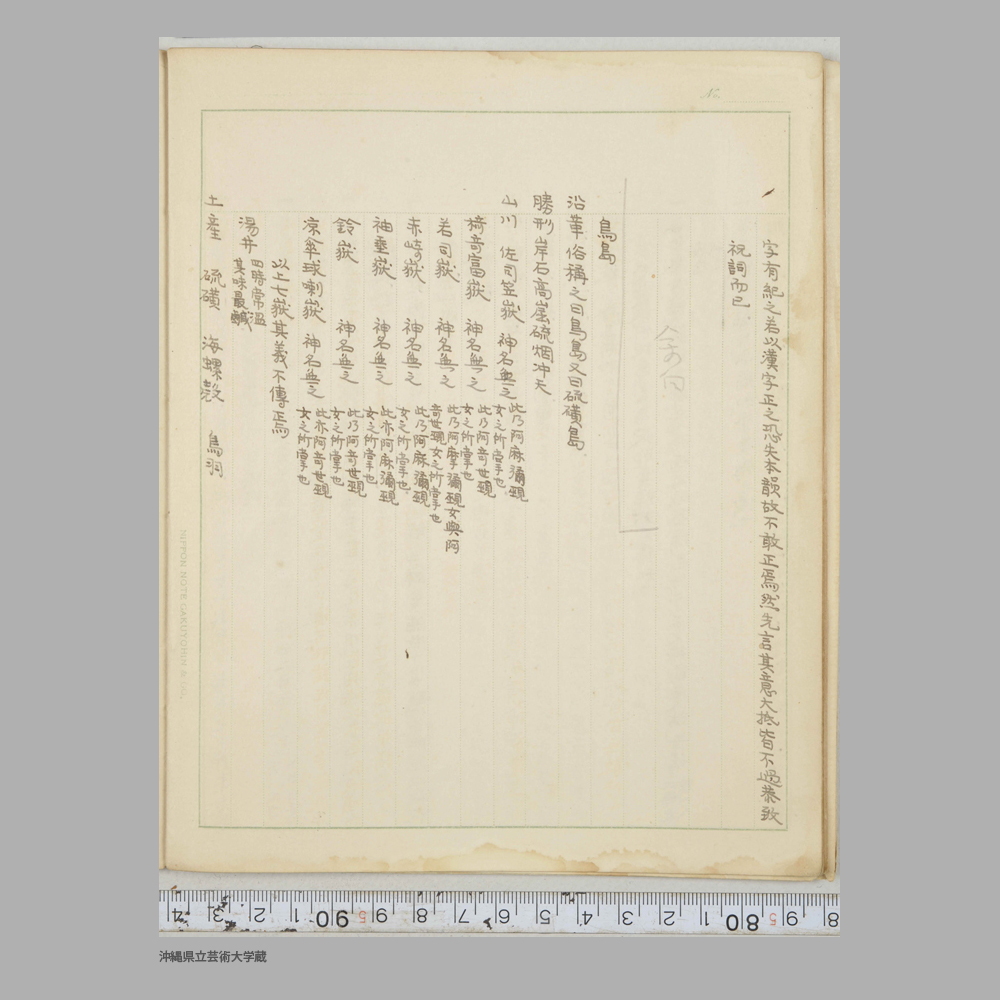 No.
字有紀之若以漢字正之恐失本韻故不敢正焉然先言其意大抵皆不過恭致
祝詞而已
鳥島
沿革 俗稱之曰鳥島又曰硫磺島
勝形 岸石高崖硫烟冲天
山川 佐司笠嶽 神名無之 此乃阿麻彌𫞂
女之所掌也
椅竒富嶽 神名無之 此乃阿竒世𫞂
女之所掌也
若司嶽 神名無之 此乃阿摩彌𫞂女與阿
竒世𫞂女之所掌也
赤崎嶽 神名無之 此乃阿麻彌𫞂
女之所掌也
袖垂嶽 神名無之 此亦阿麻彌𫞂
女之所掌也
鈴嶽 神名無之 此乃阿竒世𫞂
女之所掌也
凉傘球喇嶽 神名無之 此亦阿竒世𫞂
女之所掌也
以上七嶽其義不傳焉
湯井 四時常温
其味最鹹
土産 硫磺 海螺殼 鳥羽
NIPPON NOTE GAKUYOHIN & CO.
4 3 2 1 90 5 9 8 7 6 5 4 3 2 1 80 5 9 8
沖縄県立芸術大学蔵